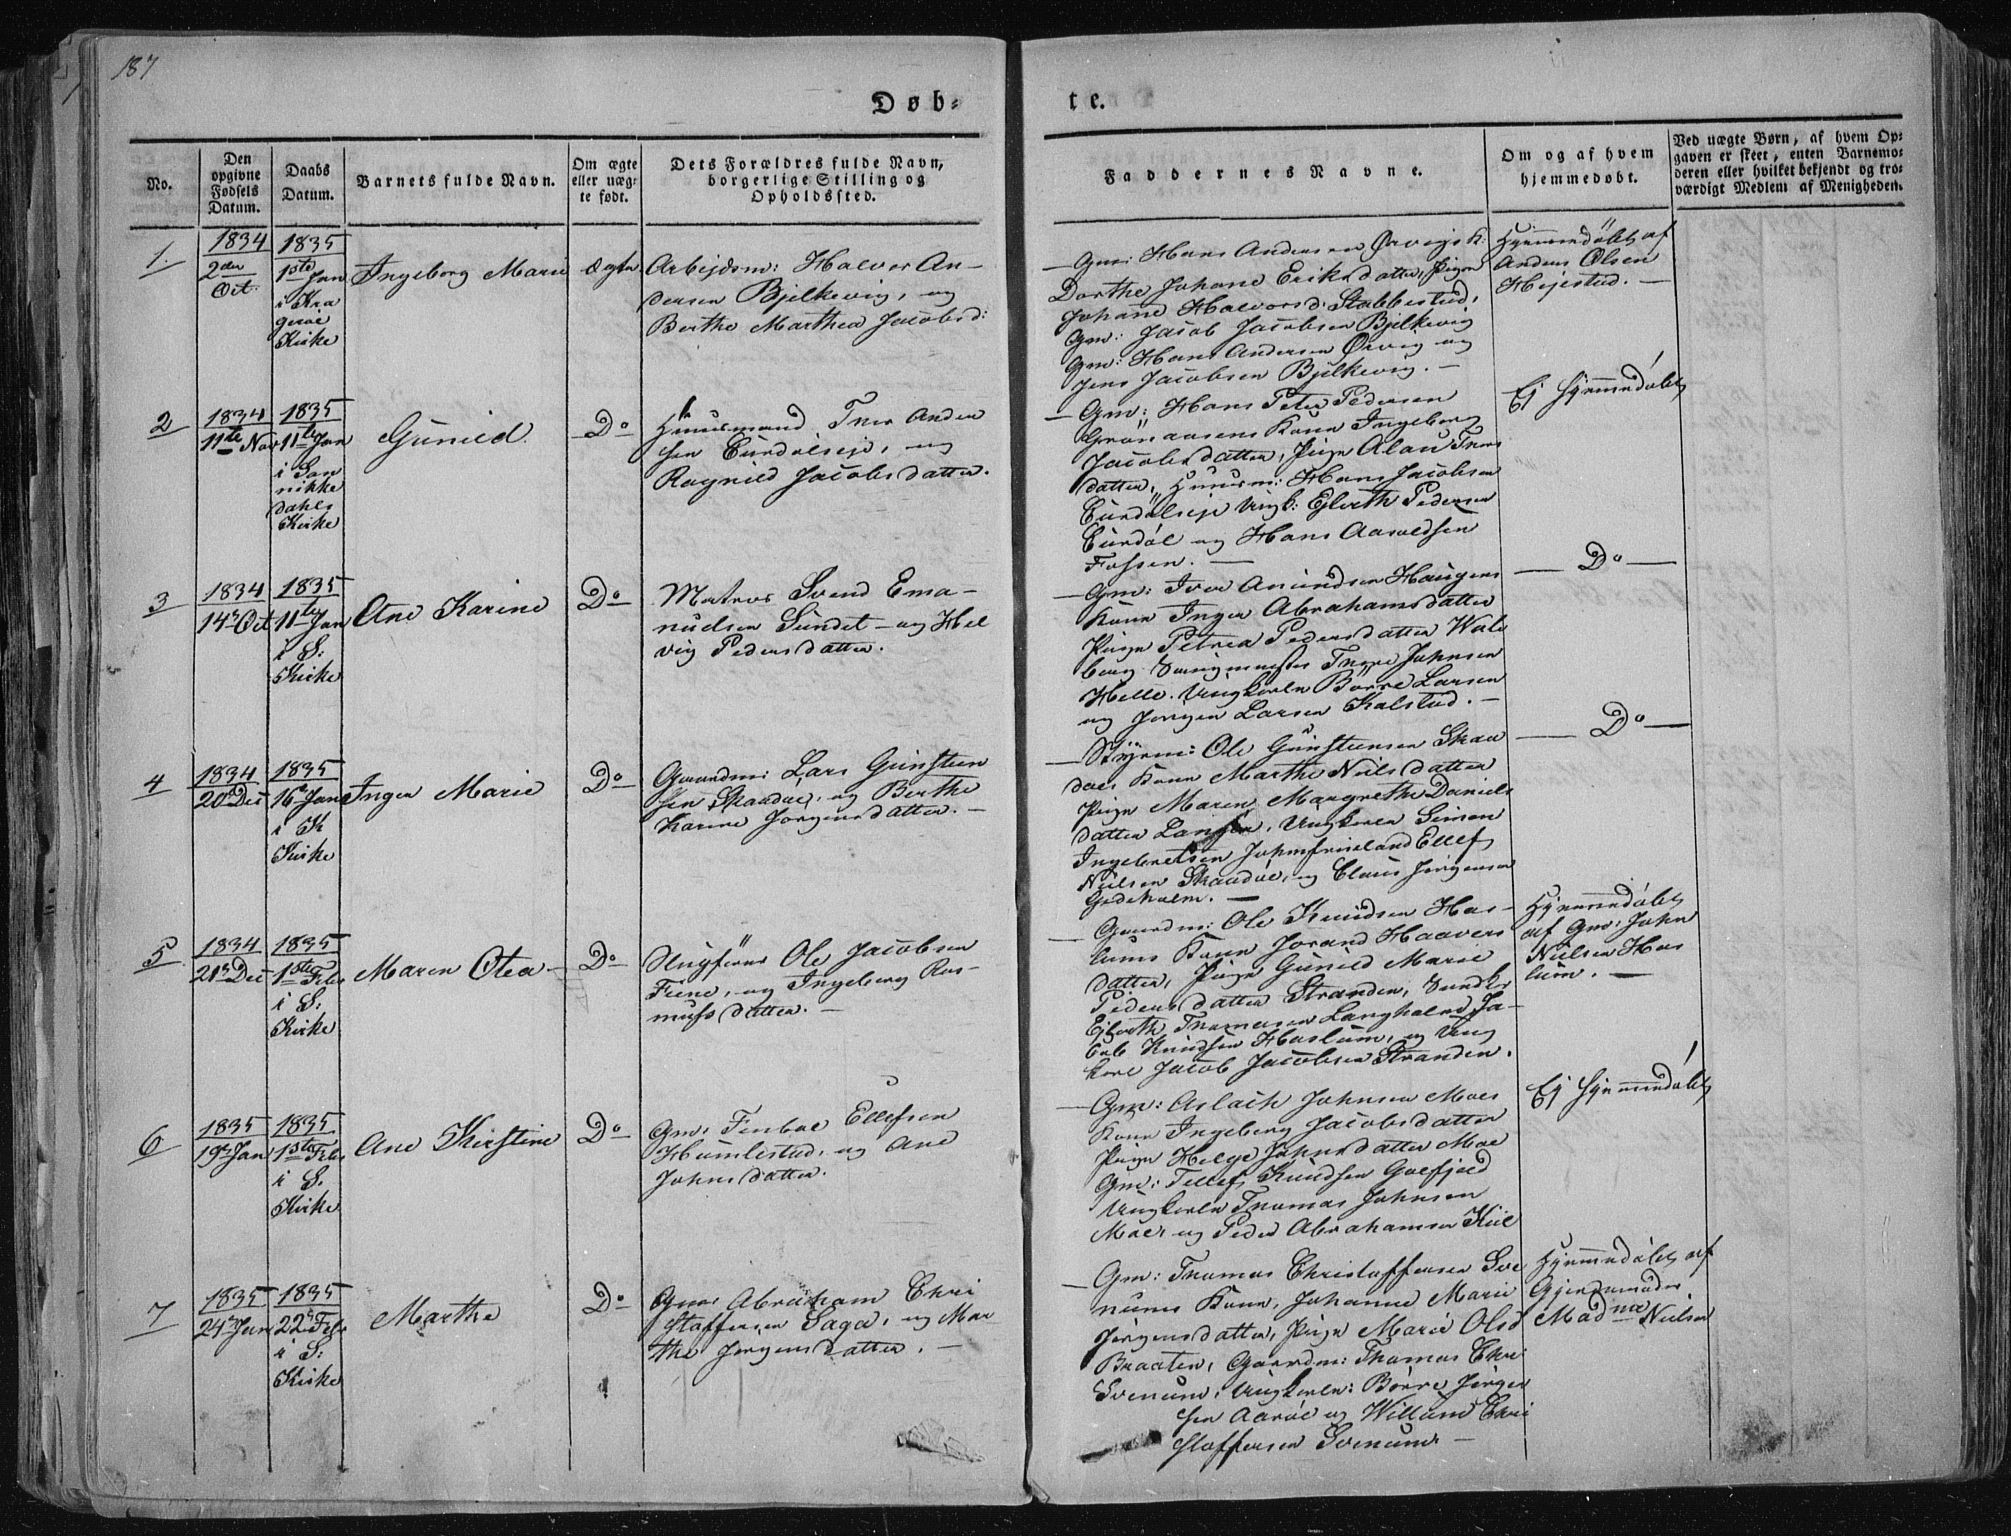 187
Døb-
te.
No.
Den
opgivne
Fødsels
Datum.
Daabs
Datum.
Barnets fulde Navn.
Om ægte
eller uæg-
te født.
Dets Forældres fulde Navn,
borgerlige Stilling og
Opholdssted.
Faddernes Navne.
Om og af hvem
hjemmedøbt.
Ved uægte Børn, af hvem Op-
gaven er skeet, enten Barnemo-
deren eller hvilket bekjendt og tro-
værdigt Medlem af Menigheden.
1.
1834
2den
Oct.
1835
1ste Jan
i Kra
gerøe
Kirke
Ingeborg Marie
Ægte
Arbejdsm: Halvor An-
dersen Bjelkevig, og
Berthe Marthea Jacobsd:
Gm: Hans Andersen Ørvigs K:
Dorthe Johane Eriksdatter, Pigen
Johane Halvorsd: Stabbestad,
Gm: Jacob Jacobsen Bjelkevig
Gm: Hans Andersen Ørvig og
Jens Jacobsen Bjelkevig. —
Hjemmedøbt af
Anders Olsen
Hejestad. —
2
1834
11te Nov
1835
11te Jan
i San
nikke
dahls
Kirke
Gunild
Do
Huusmand Thor Ander
sen Eurdølseje, og
Ragnild Jacobsdatter.
Gm: Hans Peter Pedersen
Grønaasens Kone Ingeborg
Jacobsdatter, Pige Alau Thors
datter, Huusm: Hans Jacobsen
Eurdølseje Ungk: Ejlerth Pedersen
Eurdøl og Hans Aasoldsen
Fossen. —
Ej hjemmedøbt
3
1834
14de Oct
1835
11te Jan
i S:
Kirke
Ane Karine
Do
Matros Svend Ema-
nuelsen Sundet — og Hel
vig Pedersdatter.
Gm: Iver Amundsen Haugens
Kone Inger Abrahamsdatter
Pige Petrea Pedersdatter Wale
berg Thore Johnsen
Helle. Ungkarle Børre Larsen
og Jørgen Larsen Kalstad. —
Do
4
1834
20de Dec
1835
16de Jan
i K
Kirke
Inger Marie
Do
Gaardm: Lars Gunsteen
sen Skaadøe, og Berthe
Karine Jørgensdatter. —
Styrm: Ole Gunsteensen Skaa
døes Kone Marthe Nielsdatter
Pige Maren Margrethe Daniels
datter Langøe, Ungkarle Simon
Ingebretsen Ellef
Nielsen Skaadøe, og Claus Jørgensen
Gedeholm. —
Do
5
1834
21de Dec
1835
1ste Febr
i S:
Kirke
Maren Otea
Do
Ole Jacobsen
Fiene, og Ingeborg Ras-
musdatter. —
Gaardm: Ole Knudsen Has-
lums Kone Jorand Haavers
datter, Pige Gunild Marie
Pedersdatter Stranden,
Ejlerth Thomesen Langholm Ja-
cob Knudsen Haslum, og Ung
karl Jacob Jacobsen Stranden.
Hjemmedøbt
af Gm: John
Nielsen Has
lum. —
6
1835
19de Jan
1835
1ste Febr
i S.
Kirke
Ane Kirstine
Do
Gm: Finboe Ellefsen
Humlestad, og Ane
Johnsdatter.
Gm: Aslach Johnsen Moes
Kone Ingeborg Jacobsdatter
Pige Helge Johnsdatter Moe
Gm: Tellef Knudsen Goefjeld
Ungkarle Thomas Johnsen
Moe, og Peder Abrahamsen Kiil
Ej hjemmedøbt
7
1835
24de Jan
1835
22de Febr
i S:
Kirke
Marthe
Do
Gm: Abraham Chri
stoffersen Saga, og Mar
the Jørgensdatter. —
Gm: Thomas Christoffersen Sve
nums Kone, Johanne Marie
Jørgensdatter, Pige Marie Olsd
Braaten, Gaardm: Thomas Chr:
Svenum, Ungkarle: Børre Jørgen
sen Aarøe og Willum Chri
stoffersen Svenum —
Hjemmedøbt af
Gjordemoder
Madme Nielsen